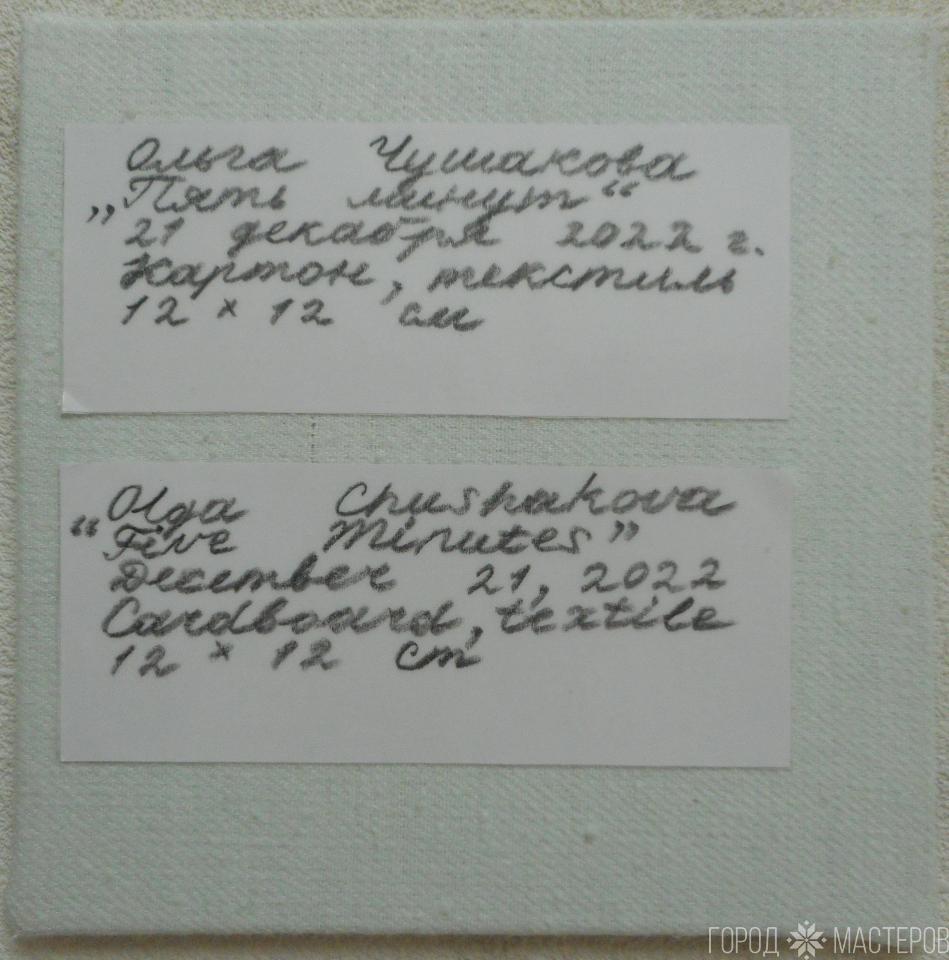 Ольга Чушакова
„Пять минут“
21 декабря 2022 г.
Картон, текстиль
12 × 12 см
Olga Chushakova
“Five Minutes”
December 21, 2022
Cardboard, textile
12 × 12 cm
ГОРОД МАСТЕРОВ